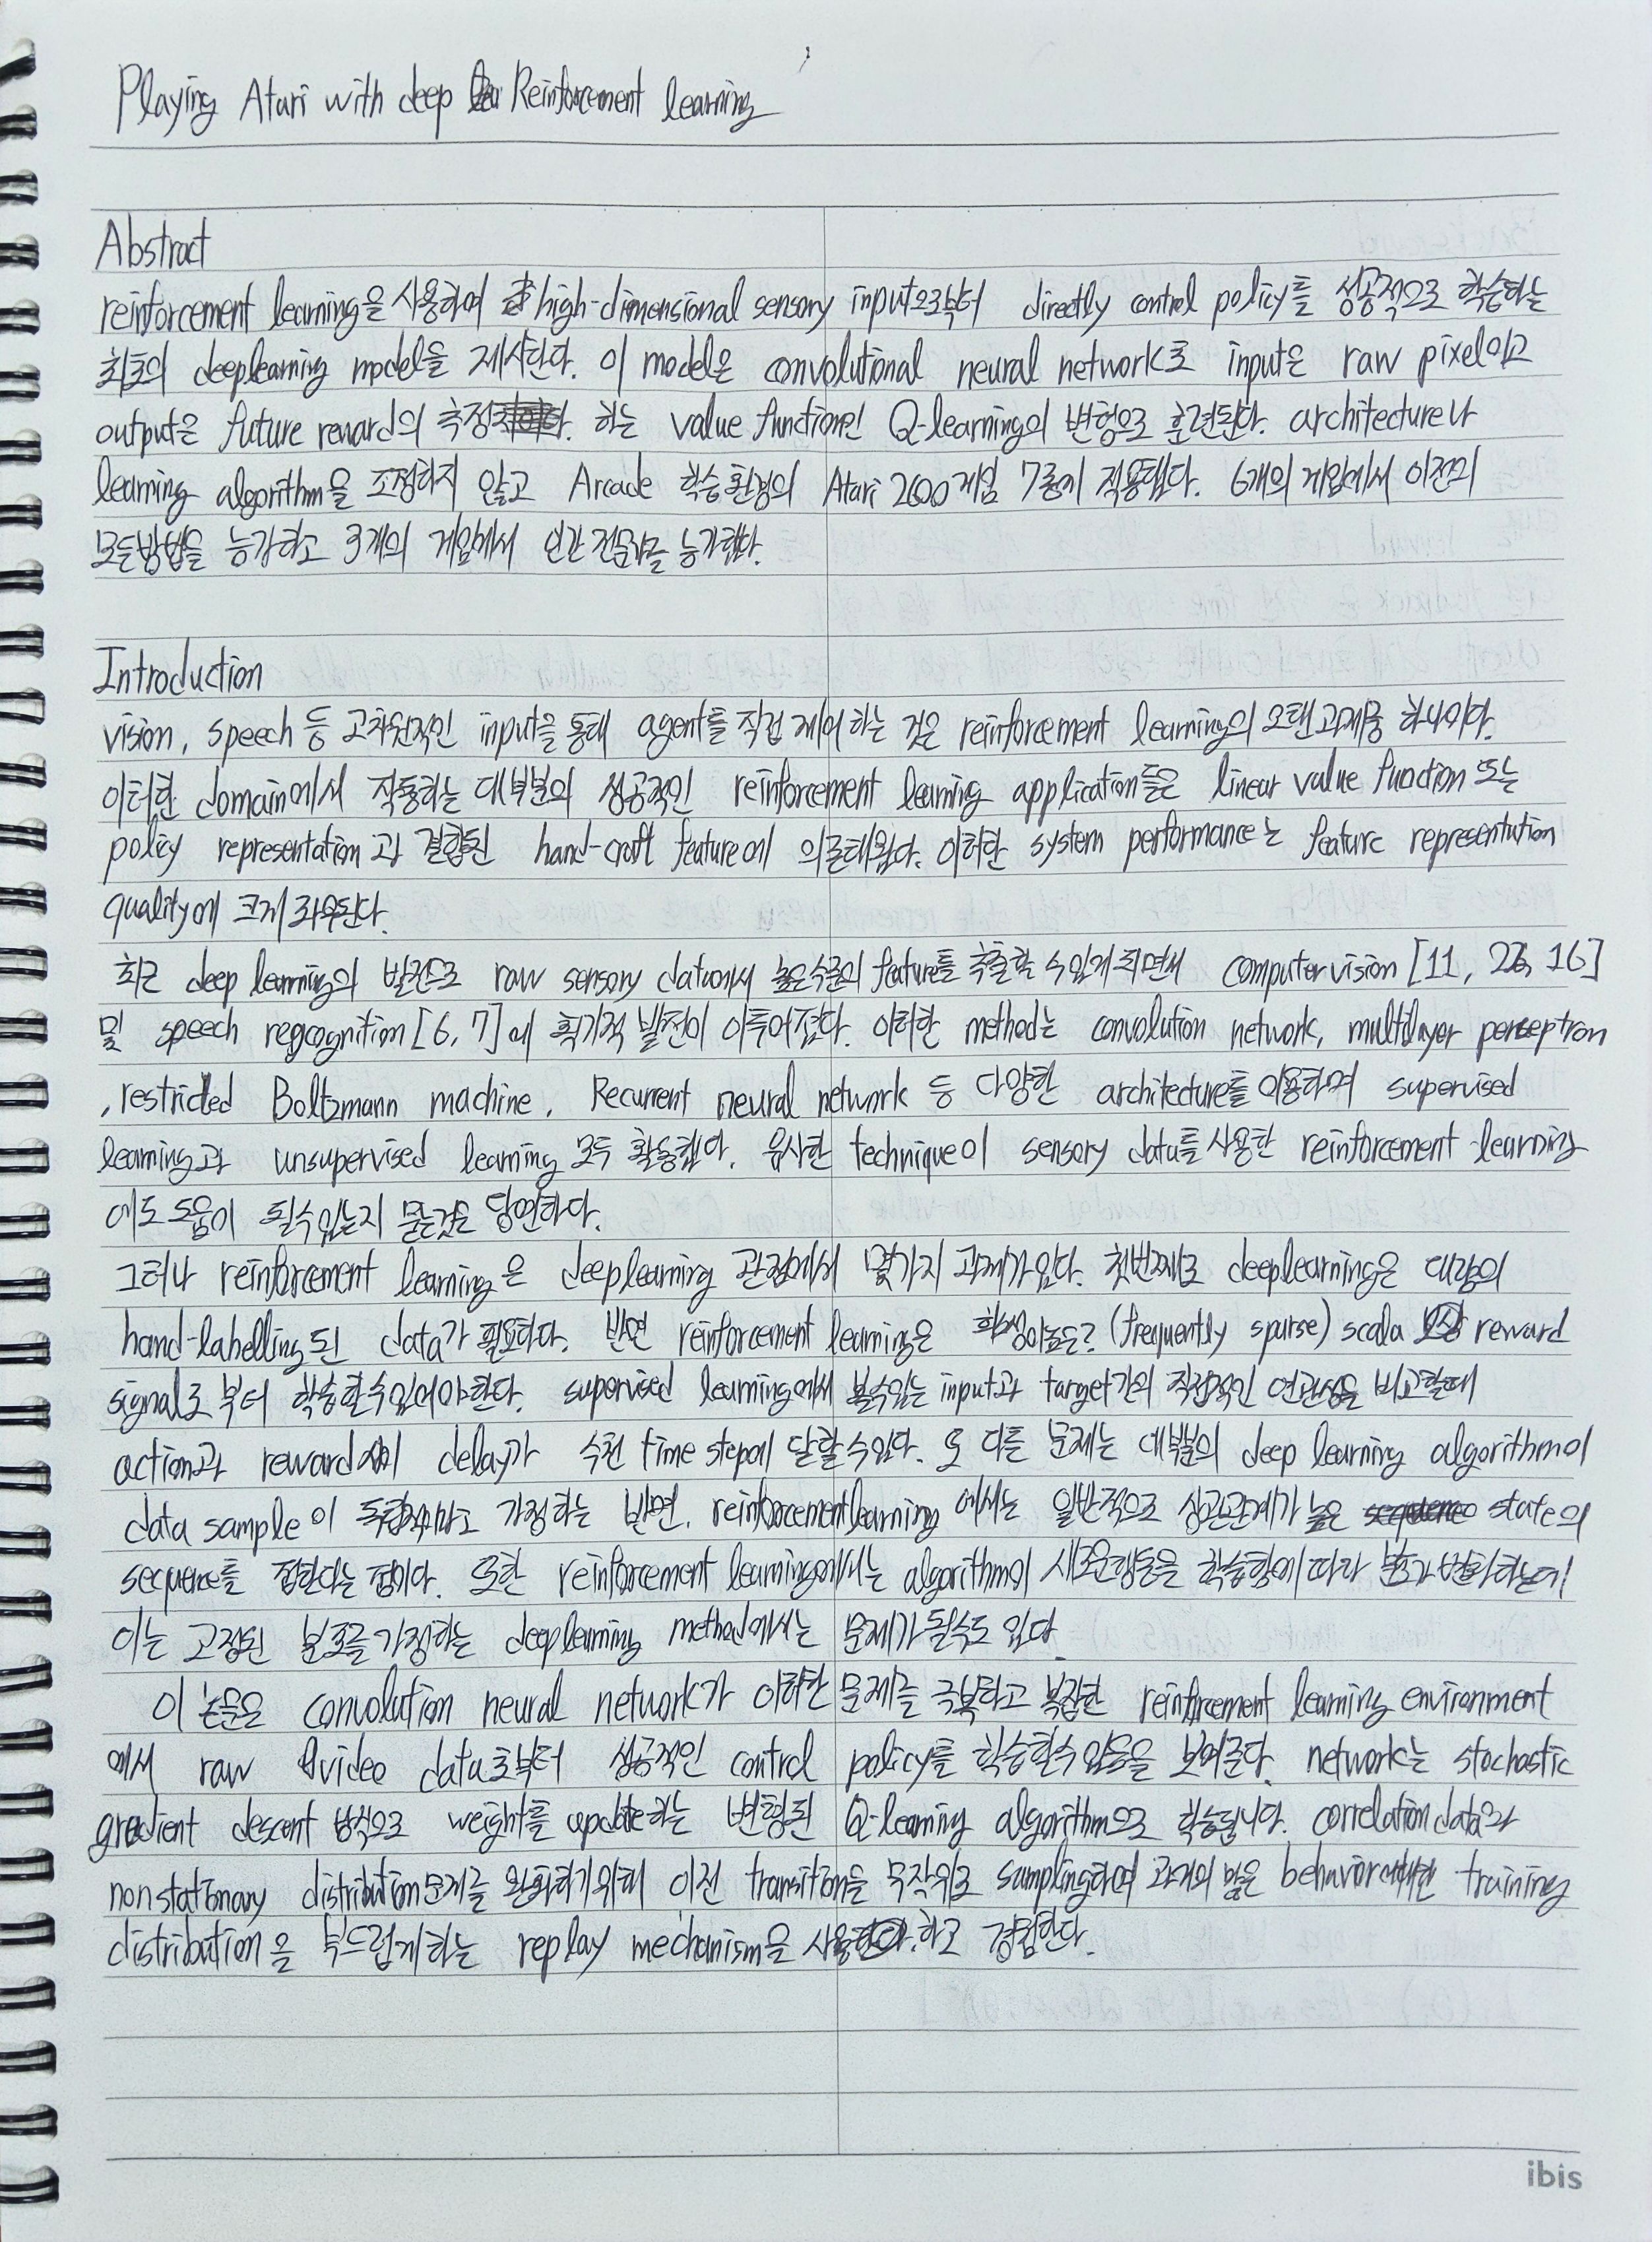 Playing Atari with deep Reinforcement learning
Abstract
reinforcement learning을 사용하여 high-dimensional sensory input으로부터 directly control policy를 성공적으로 학습하는
최초의 deeplearning model을 제시한다. 이 model은 convolutional neural network로 input은 raw pixel이고
output은 future reward의 측정 하는 value function인 Q-learning의 변형으로 훈련된다. architecture나
learning algorithm을 조정하지 않고 Arcade 학습환경의 Atari 2600게임 7종에 적용했다. 6개의 게임에서 이전의
모든방법을 능가하고 3개의 게임에서 인간 전문가를 능가했다.
Introduction
vision, speech 등 고차원적인 input을 통해 agent를 직접 제어 하는 것은 reinforcement learning의 오랜 과제중 하나이다.
이러한 domain에서 작동하는 대부분의 성공적인 reinforcement learning application들은 linear value function 또는
policy representation과 결합된 hand-craft feature에 의존해왔다. 이러한 system performance는 feature representation
quality에 크게 좌우된다.
최근 deep learning의 발전으로 raw sensory data에서 높은수준의 feature를 추출할 수있게 되면서 computer vision [11, 22, 16]
및 speech recognition [6, 7]에 획기적 발전이 이루어졌다. 이러한 method는 convolution network, multilayer perceptron
, restricted Boltzmann machine, Recurrent neural network 등 다양한 architecture를 이용하며 supervised
learning과 unsupervised learning 모두 활용했다. 유사한 technique이 sensory data를 사용한 reinforcement learning
에도 도움이 될수있는지 묻는것은 당연하다.
그러나 reinforcement learning은 deeplearning 관점에서 몇가지 과제가있다. 첫번째로 deeplearning은 대량의
hand-labelling된 data가 필요하다. 반면 reinforcement learning은 희생이높은? (frequently sparse) scala reward
signal로 부터 학습할수있어야한다. supervised learning에서 볼수있는 input과 target간의 직접적인 연관성을 비교할때
action과 reward 사이 delay가 수천 time step에 달할수있다. 또 다른 문제는 대부분의 deep learning algorithm이
data sample이 독립적이라고 가정하는 반면, reinforcementlearning에서는 일반적으로 상관관계가 높은 state의
sequence를 접한다는 점이다. 또한 reinforcement learning에서는 algorithm이 새로운행동을 학습함에 따라 분포가 변화하는데
이는 고정된 분포를 가정하는 deeplearning method에서는 문제가 될수도 있다.
이 논문은 convolution neural network가 이러한 문제를 극복하고 복잡한 reinforcement learning environment
에서 raw video data로부터 성공적인 control policy를 학습할수 있음을 보여준다. network는 stochastic
gradient descent 방식으로 weight를 update하는 변형된 Q-learning algorithm으로 학습됩니다. correlation data와
nonstationary distribution문제를 완화하기위해 이전 transition을 무작위로 sampling하여 과거의 많은 behavior에대한 training
distribution을 부드럽게하는 replay mechanism을 사용 하고 경험한다.
ibis